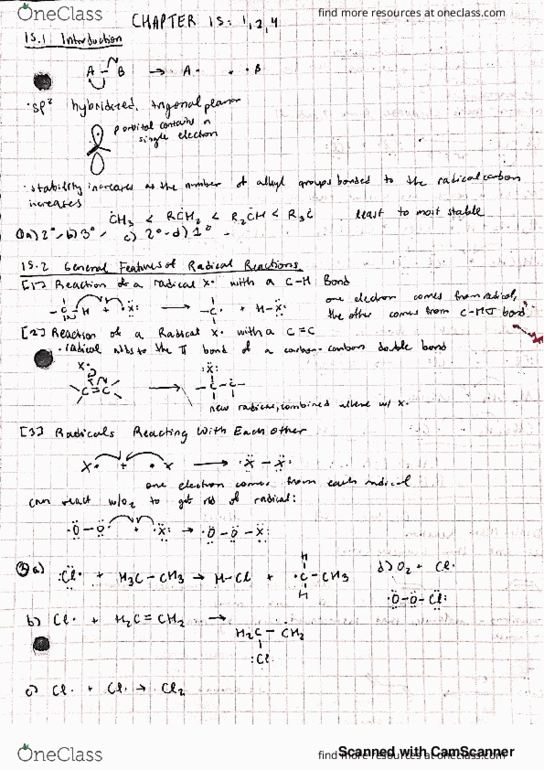 OneClass
find more resources at oneclass.com
CHAPTER 15: 1,2,4
15.1 Introduction
A – B → A· · B
·sp² hybridized, trigonal planar
p orbital contains a
single electron
·stability increases as the number of alkyl groups bonded to the radical carbon
increases
ĊH₃ < RĊH₂ < R₂ĊH < R₃Ċ least to most stable
a) 2° b) 3° c) 2° d) 1°
15.2 General Features of Radical Reactions
[1] Reaction of a radical X· with a C-H Bond
-C-H + ·Ẍ: → -C· + H-Ẍ:
one electron comes from radical,
the other comes from C-H σ bond
[2] Reaction of a Radical X· with a C=C
·radical adds to the π bond of a carbon-carbon double bond
X·
C=C → -C-C-
:Ẍ:
new radical, combined alkene w/ X·
[3] Radicals Reacting With Each Other
X· + ·X → :Ẍ-Ẍ:
one electron comes from each radical
can react w/O₂ to get rid of radical:
·Ö-Ö· + ·Ẍ: → ·Ö-Ö-Ẍ:
a) :Cl· + H₃C-CH₃ → H-Cl + ·C-CH₃
H
H
d) O₂ + Cl·
·Ö-Ö-Cl:
b) Cl· + H₂C=CH₂ →
H₂C-ĊH₂
:Cl:
c) Cl· + Cl· → Cl₂
OneClass
find more resources at oneclass.com
Scanned with CamScanner